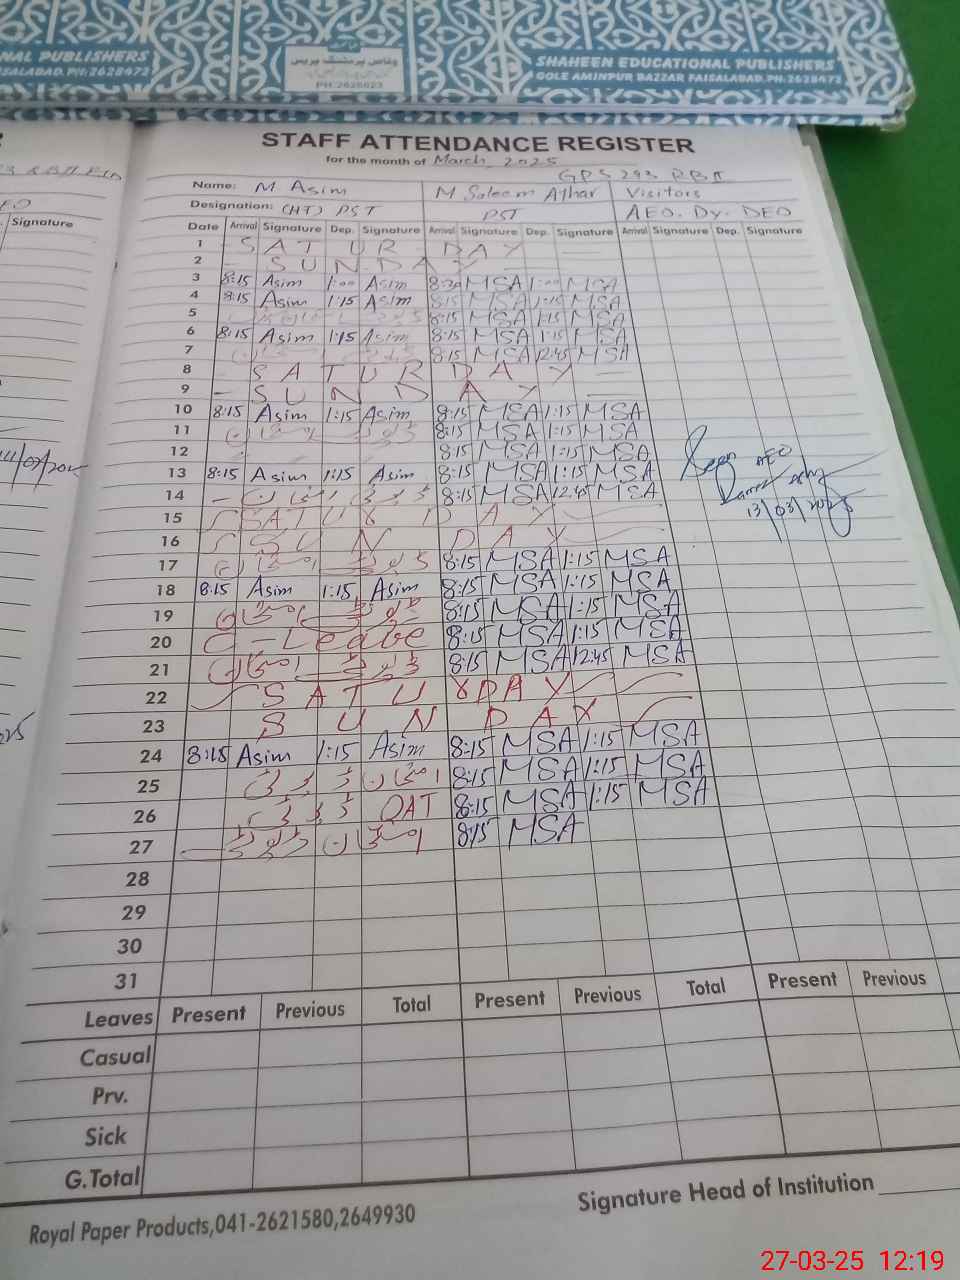 NAL PUBLISHERS
ISALABAD. PH:2628472
وقاص پرنٹنگ پریس
PH:2626023
SHAHEEN EDUCATIONAL PUBLISHERS
GOLE AMINPUR BAZZAR FAISALABAD.PH:2628472
STAFF ATTENDANCE REGISTER
for the month of March, 2025
GPS 293 RB II
Name: M Asim M Saleem Athar Visitors
Designation: (HT) PST PST AEO. Dy. DEO
Signature
Date Arrival Signature Dep. Signature Arrival Signature Dep. Signature Arrival Signature Dep. Signature
1 SATURDAY
2 SUNDAY
3 8:15 Asim 1:00 Asim 8:30 MSA 1:00 MSA
4 8:15 Asim 1:15 Asim 8:15 MSA 1:15 MSA
5 8:15 MSA 1:15 MSA
6 8:15 Asim 1:15 Asim 8:15 MSA 1:15 MSA
7 8:15 MSA 12:45 MSA
8 SATURDAY
9 SUNDAY
10 8:15 Asim 1:15 Asim 8:15 MSA 1:15 MSA
11 8:15 MSA 1:15 MSA
12 8:15 MSA 1:15 MSA
13 8:15 Asim 1:15 Asim 8:15 MSA 1:15 MSA
14 8:15 MSA 12:45 MSA
AEO
13/03/2025
15 SATURDAY
16 SUNDAY
17 8:15 MSA 1:15 MSA
18 8:15 Asim 1:15 Asim 8:15 MSA 1:15 MSA
19 8:15 MSA 1:15 MSA
20 C-Leave 8:15 MSA 1:15 MSA
21 8:15 MSA 12:45 MSA
22 SATURDAY
23 SUNDAY
24 8:15 Asim 1:15 Asim 8:15 MSA 1:15 MSA
25 8:15 MSA 1:15 MSA
26 QAT 8:15 MSA 1:15 MSA
27 8:15 MSA
28
29
30
31
Leaves Present Previous Total Present Previous Total Present Previous
Casual
Prv.
Sick
G.Total
Signature Head of Institution
Royal Paper Products,041-2621580,2649930
27-03-25 12:19